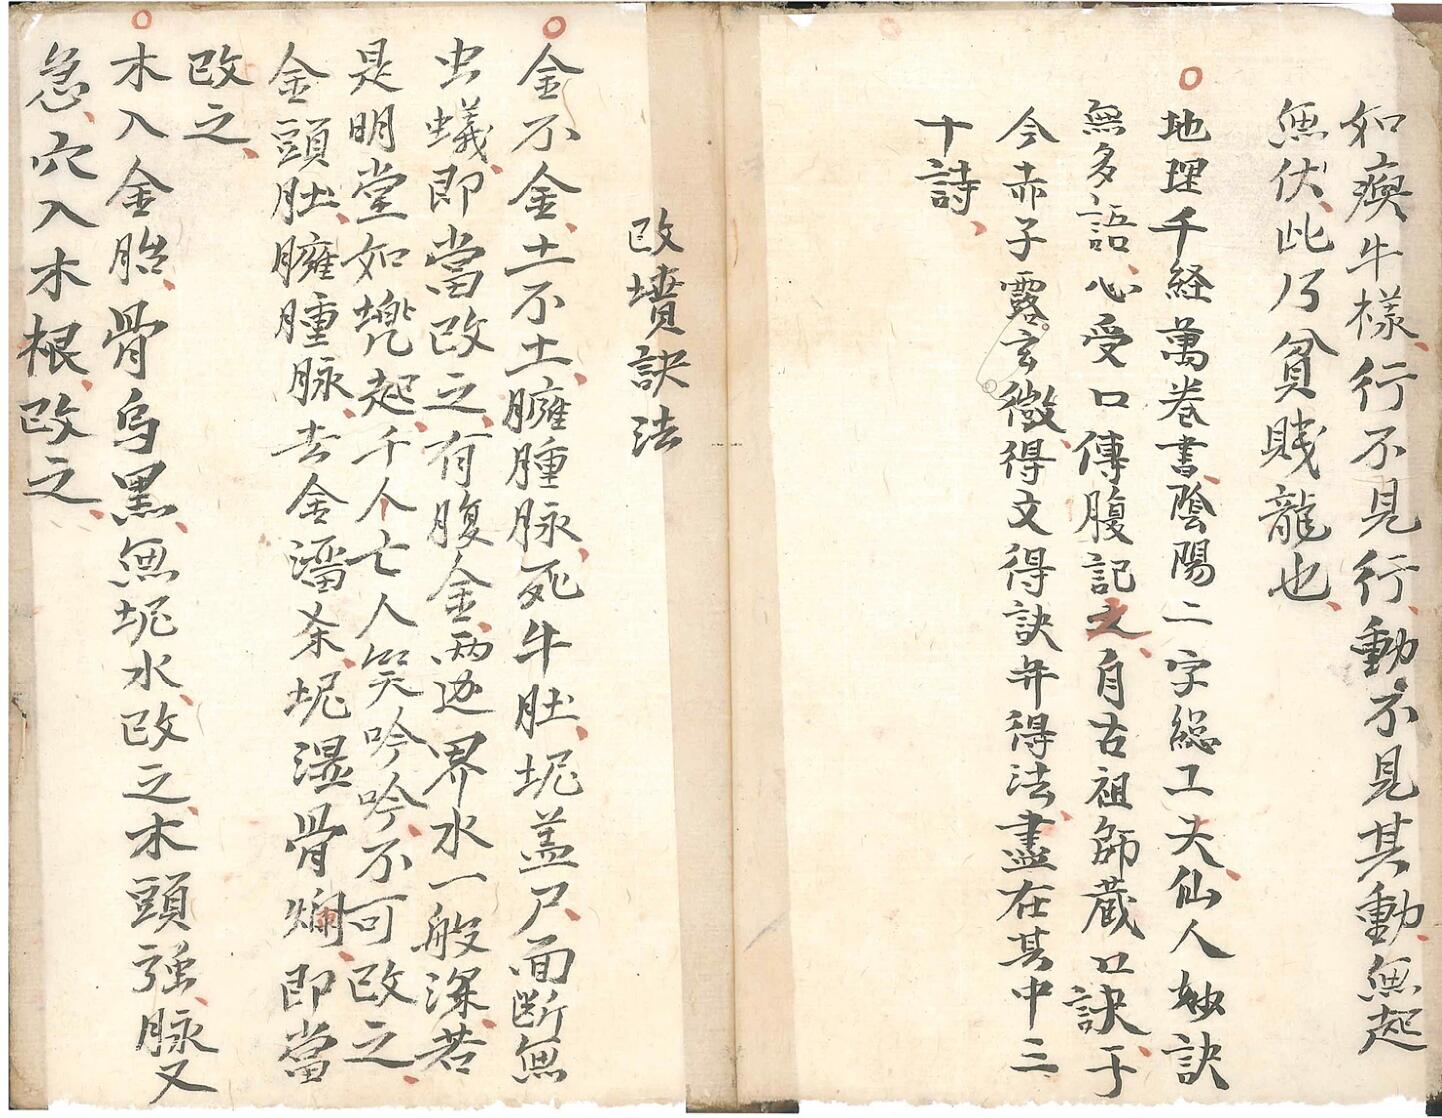 如瘓牛樣行不見行動不見其動無起
無伏此乃貧賤龍也
地理千経萬卷書陰陽二字総工夫仙人妙訣
無多語心受口傳腹記之自古祖師藏口訣于
今赤子露玄微得文得訣并得法盡在其中三
十詩
改墳訣法
金不金土不土臃腫脉死牛肚坭盖尸面断無
虫蟻即當改之有腹金両边界水一般深若
是明堂如堯起千人亡人笑吟吟不可改之
金頭肚臃腫脉去金濇杀坭湿骨爛即當
改之
木入金胎骨烏黑無坭水改之木頭强脉又
急穴入木根改之